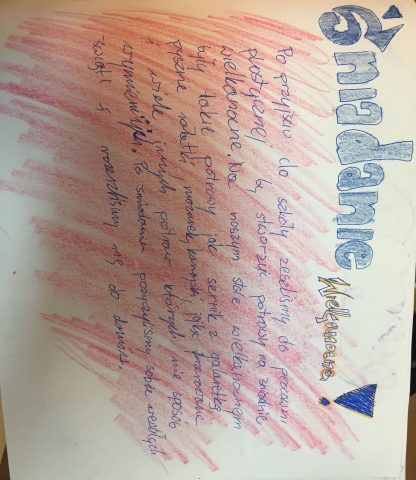 Śniadanie Wielkanocne!
Po przyjściu do szkoły zeszliśmy do pracowni
plastycznej by stworzyć potrawy na śniadanie
wielkanocne. Na naszym stole wielkanocnym
były takie potrawy jak sernik z galaretką,
pyszne sałatki, kanapki, jajka
i wiele innych potraw których nie sposób
wymienić. Po śniadaniu życzyliśmy sobie wesołych
świąt i rozeszliśmy się do domów.